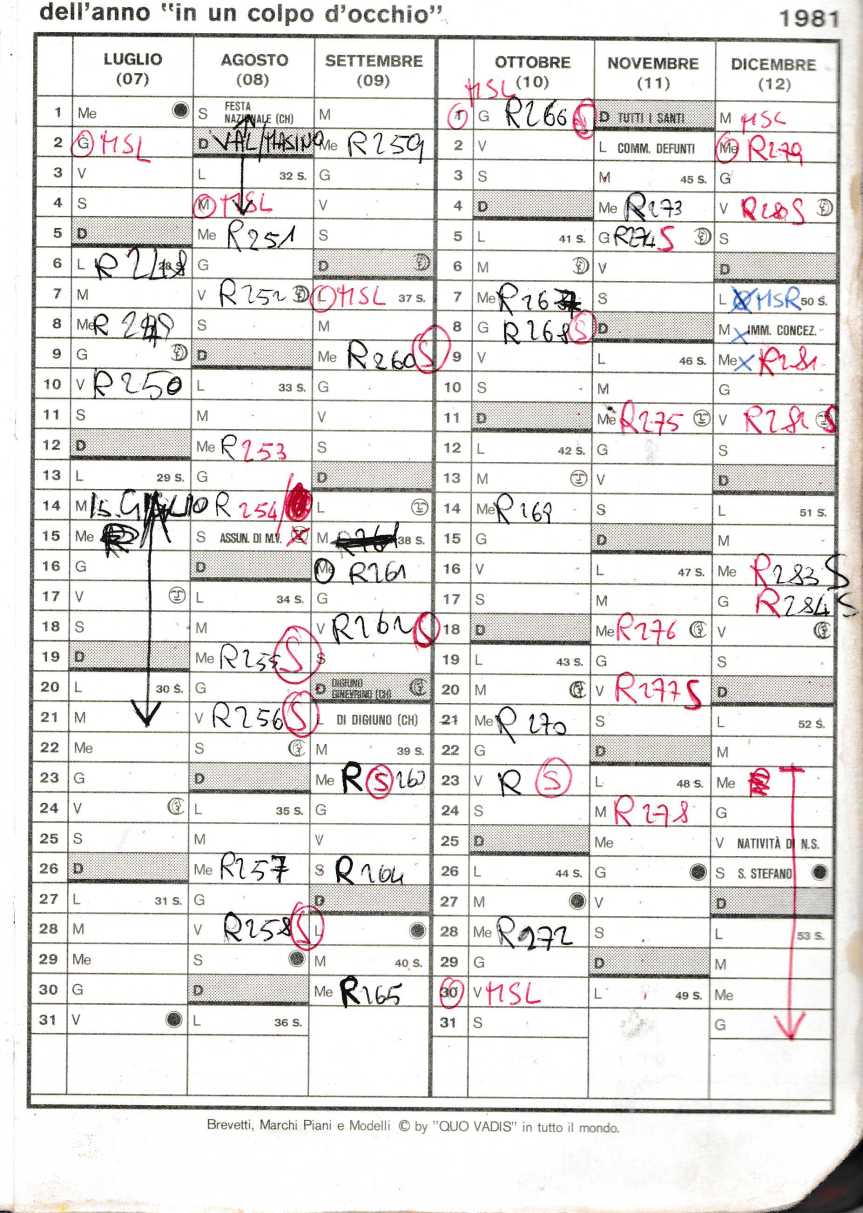 dell'anno "in un colpo d'occhio" 1981
LUGLIO (07) AGOSTO (08) SETTEMBRE (09) OTTOBRE (10) NOVEMBRE (11) DICEMBRE (12)
MSL
1 Me S FESTA NAZIONALE (CH) M 1 G R266 S D TUTTI I SANTI M MSL
2 G MSL D VAL MASINO Me R259 2 V L COMM. DEFUNTI Me R279
3 V L 32 S. G 3 S M 45 S. G
4 S M MSL V 4 D Me R273 V R280 S
5 D Me R251 S 5 L 41 S. G R274 S S
6 L R248 G D 6 M V D
7 M V R252 L MSL 37 S. 7 Me R267 S L MSR 50 S.
8 Me R249 S M 8 G R268 S D M IMM. CONCEZ.
9 G D Me R260 S 9 V L 46 S. Me R281
10 V R250 L 33 S. G 10 S M G
11 S M V 11 D Me R275 V R282 S
12 D Me R253 S 12 L 42 S. G S
13 L 29 S. G D 13 M V D
14 M IS. GIGLIO R254 L 14 Me R269 S L 51 S.
15 Me S ASSUN. DI M.V. M R261 38 S. 15 G D M
16 G D Me R261 16 V L 47 S. Me R283 S
17 V L 34 S. G 17 S M G R284 S
18 S M V R262 S 18 D Me R276 V
19 D Me R255 S S 19 L 43 S. G S
20 L 30 S. G D DIGIUNO GINEVRINO (CH) 20 M V R277 S D
21 M V R256 S L DI DIGIUNO (CH) 21 Me R270 S L 52 S.
22 Me S M 39 S. 22 G D M
23 G D Me R S 260 23 V R S L 48 S. Me
24 V L 35 S. G 24 S M R278 G
25 S M V 25 D Me V NATIVITÀ DI N.S.
26 D Me R257 S R264 26 L 44 S. G S S. STEFANO
27 L 31 S. G D 27 M V D
28 M V R258 S L 28 Me R272 S L 53 S.
29 Me S M 40 S. 29 G D M
30 G D Me R265 30 V MSL L 49 S. Me
31 V L 36 S. 31 S G
Brevetti, Marchi Piani e Modelli © by "QUO VADIS" in tutto il mondo.